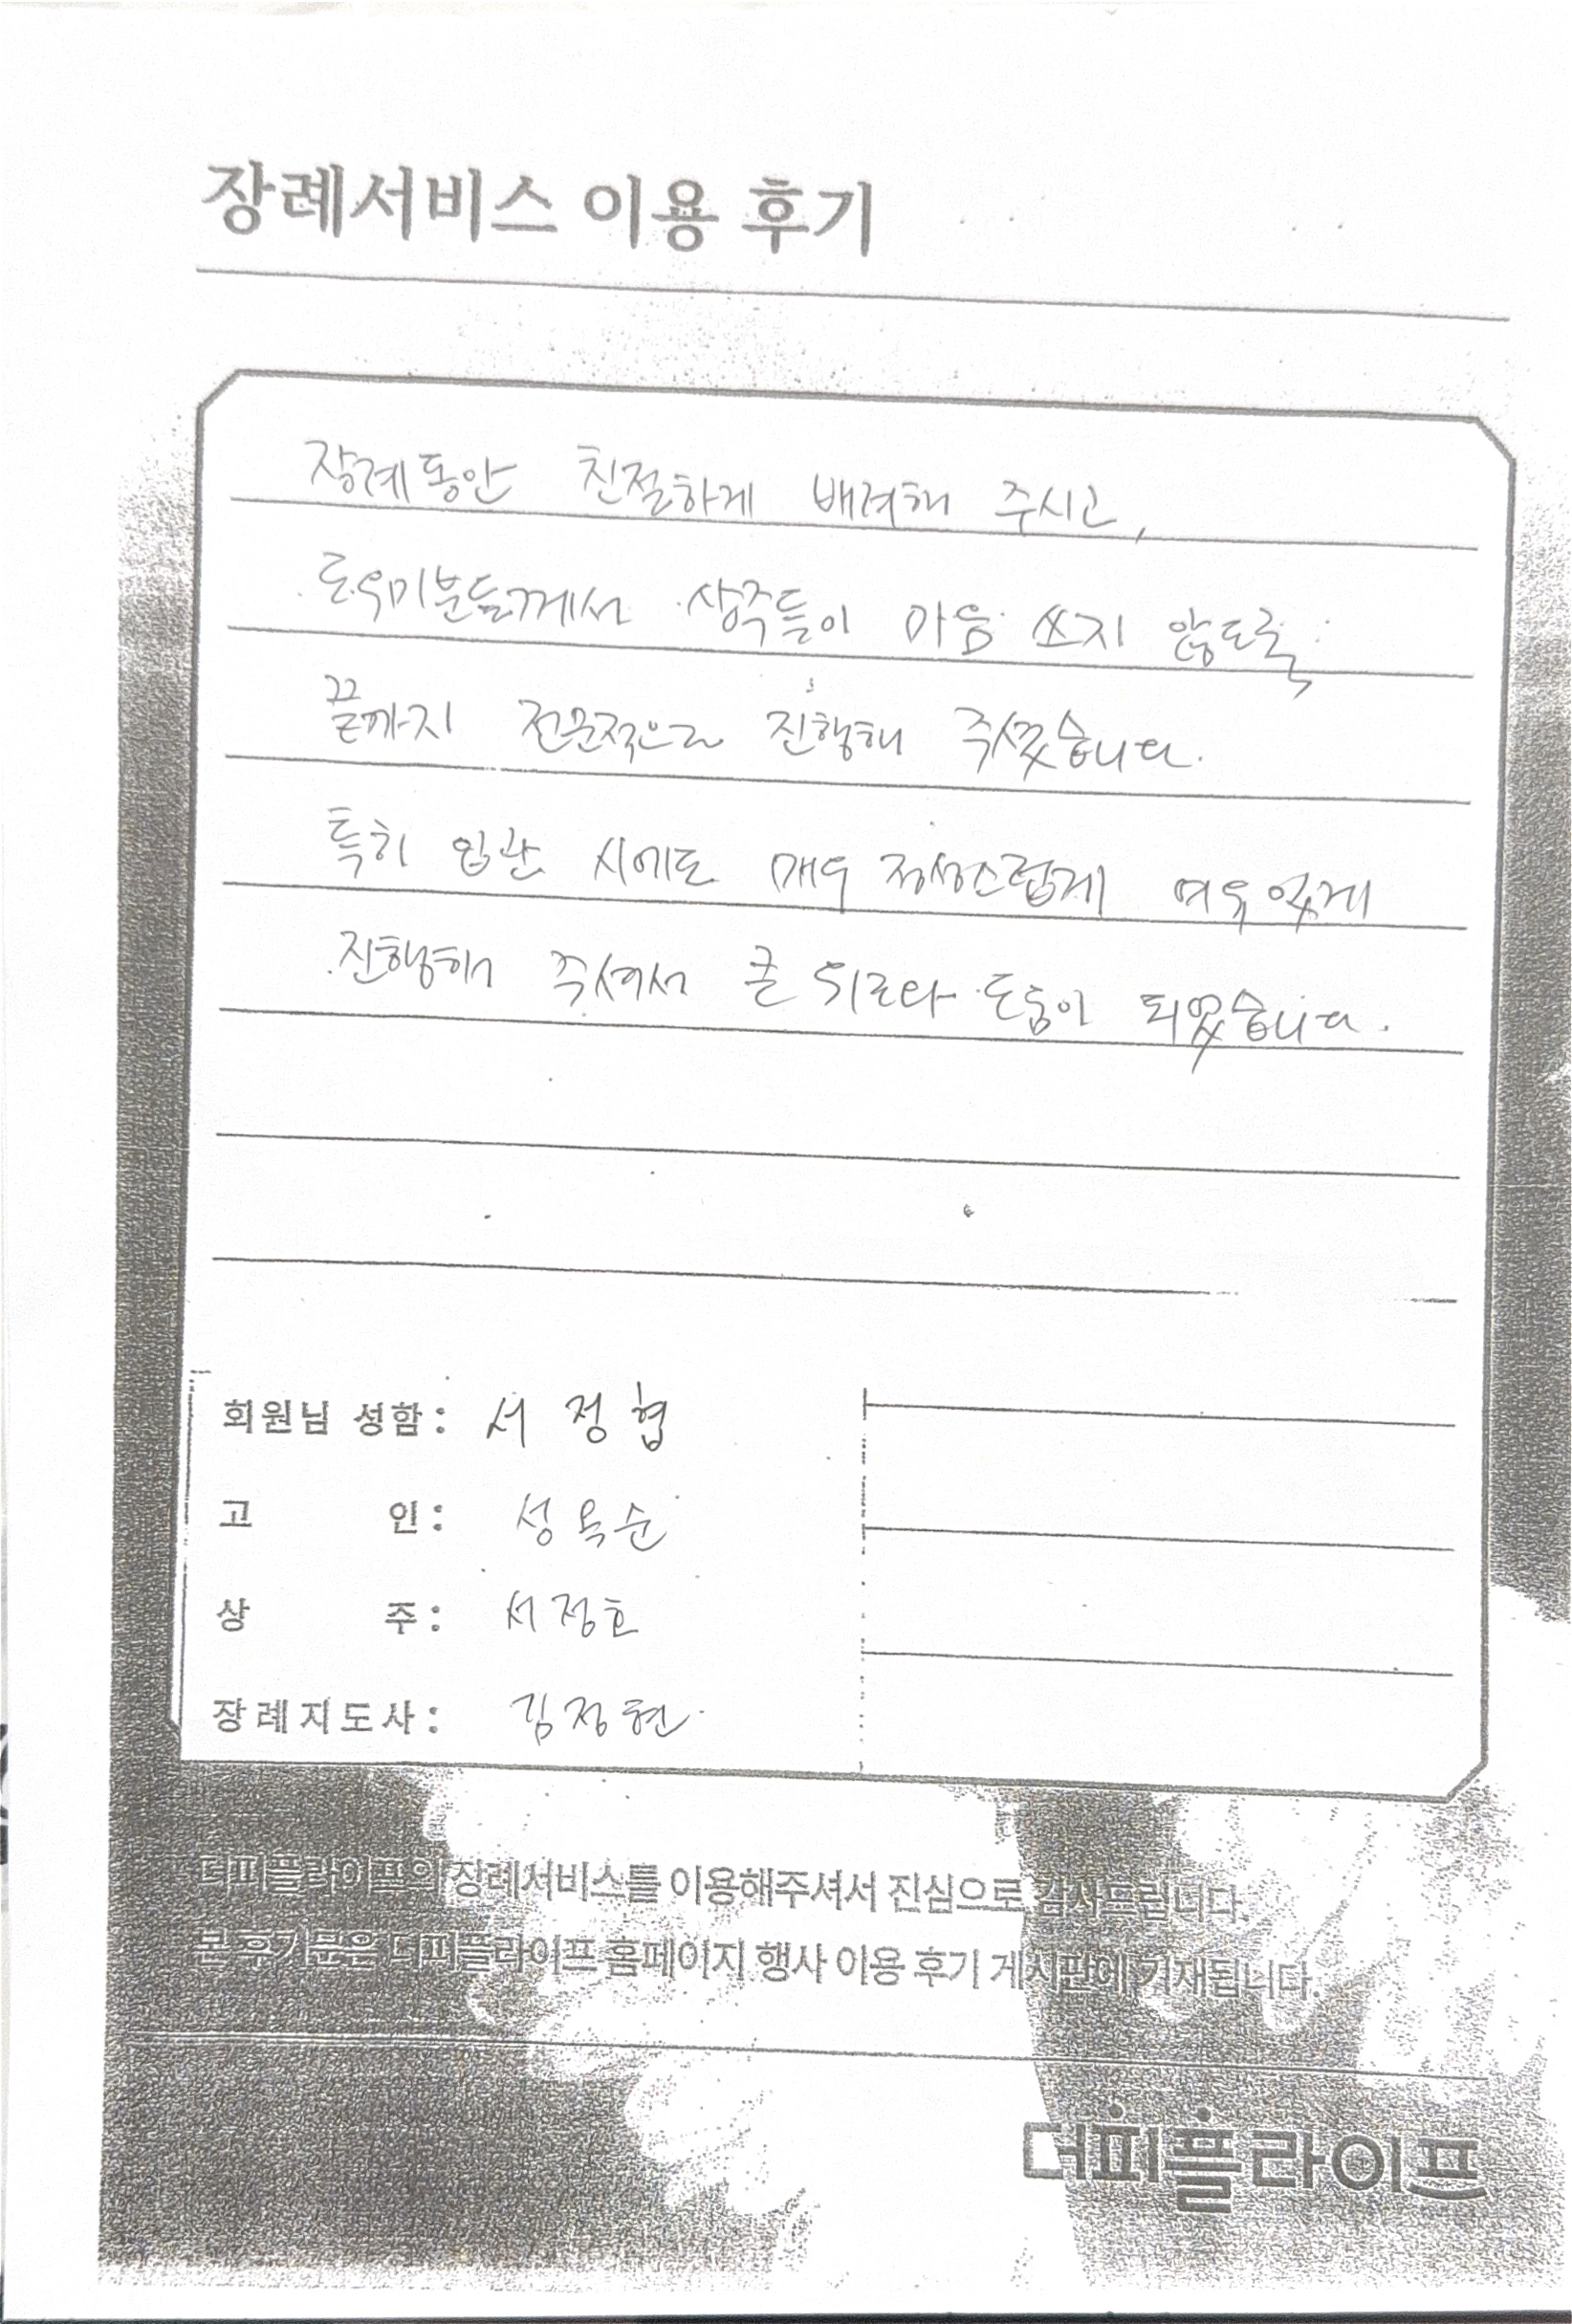 장례서비스 이용 후기
장례동안 친절하게 배려해 주시고,
도우미분들께서 상주들이 마음 쓰지 않도록
끝까지 전문적으로 진행해 주셨습니다.
특히 입관 시에도 매우 정성스럽게 여유있게
진행해 주셔서 큰 위로와 도움이 되었습니다.
회원님 성함: 서정협
고 인: 성옥순
상 주: 서정호
장례지도사: 김정현
더피플라이프의 장례서비스를 이용해주셔서 진심으로 감사드립니다.
본 후기문은 더피플라이프 홈페이지 행사 이용 후기 게시판에 기재됩니다.
더피플라이프